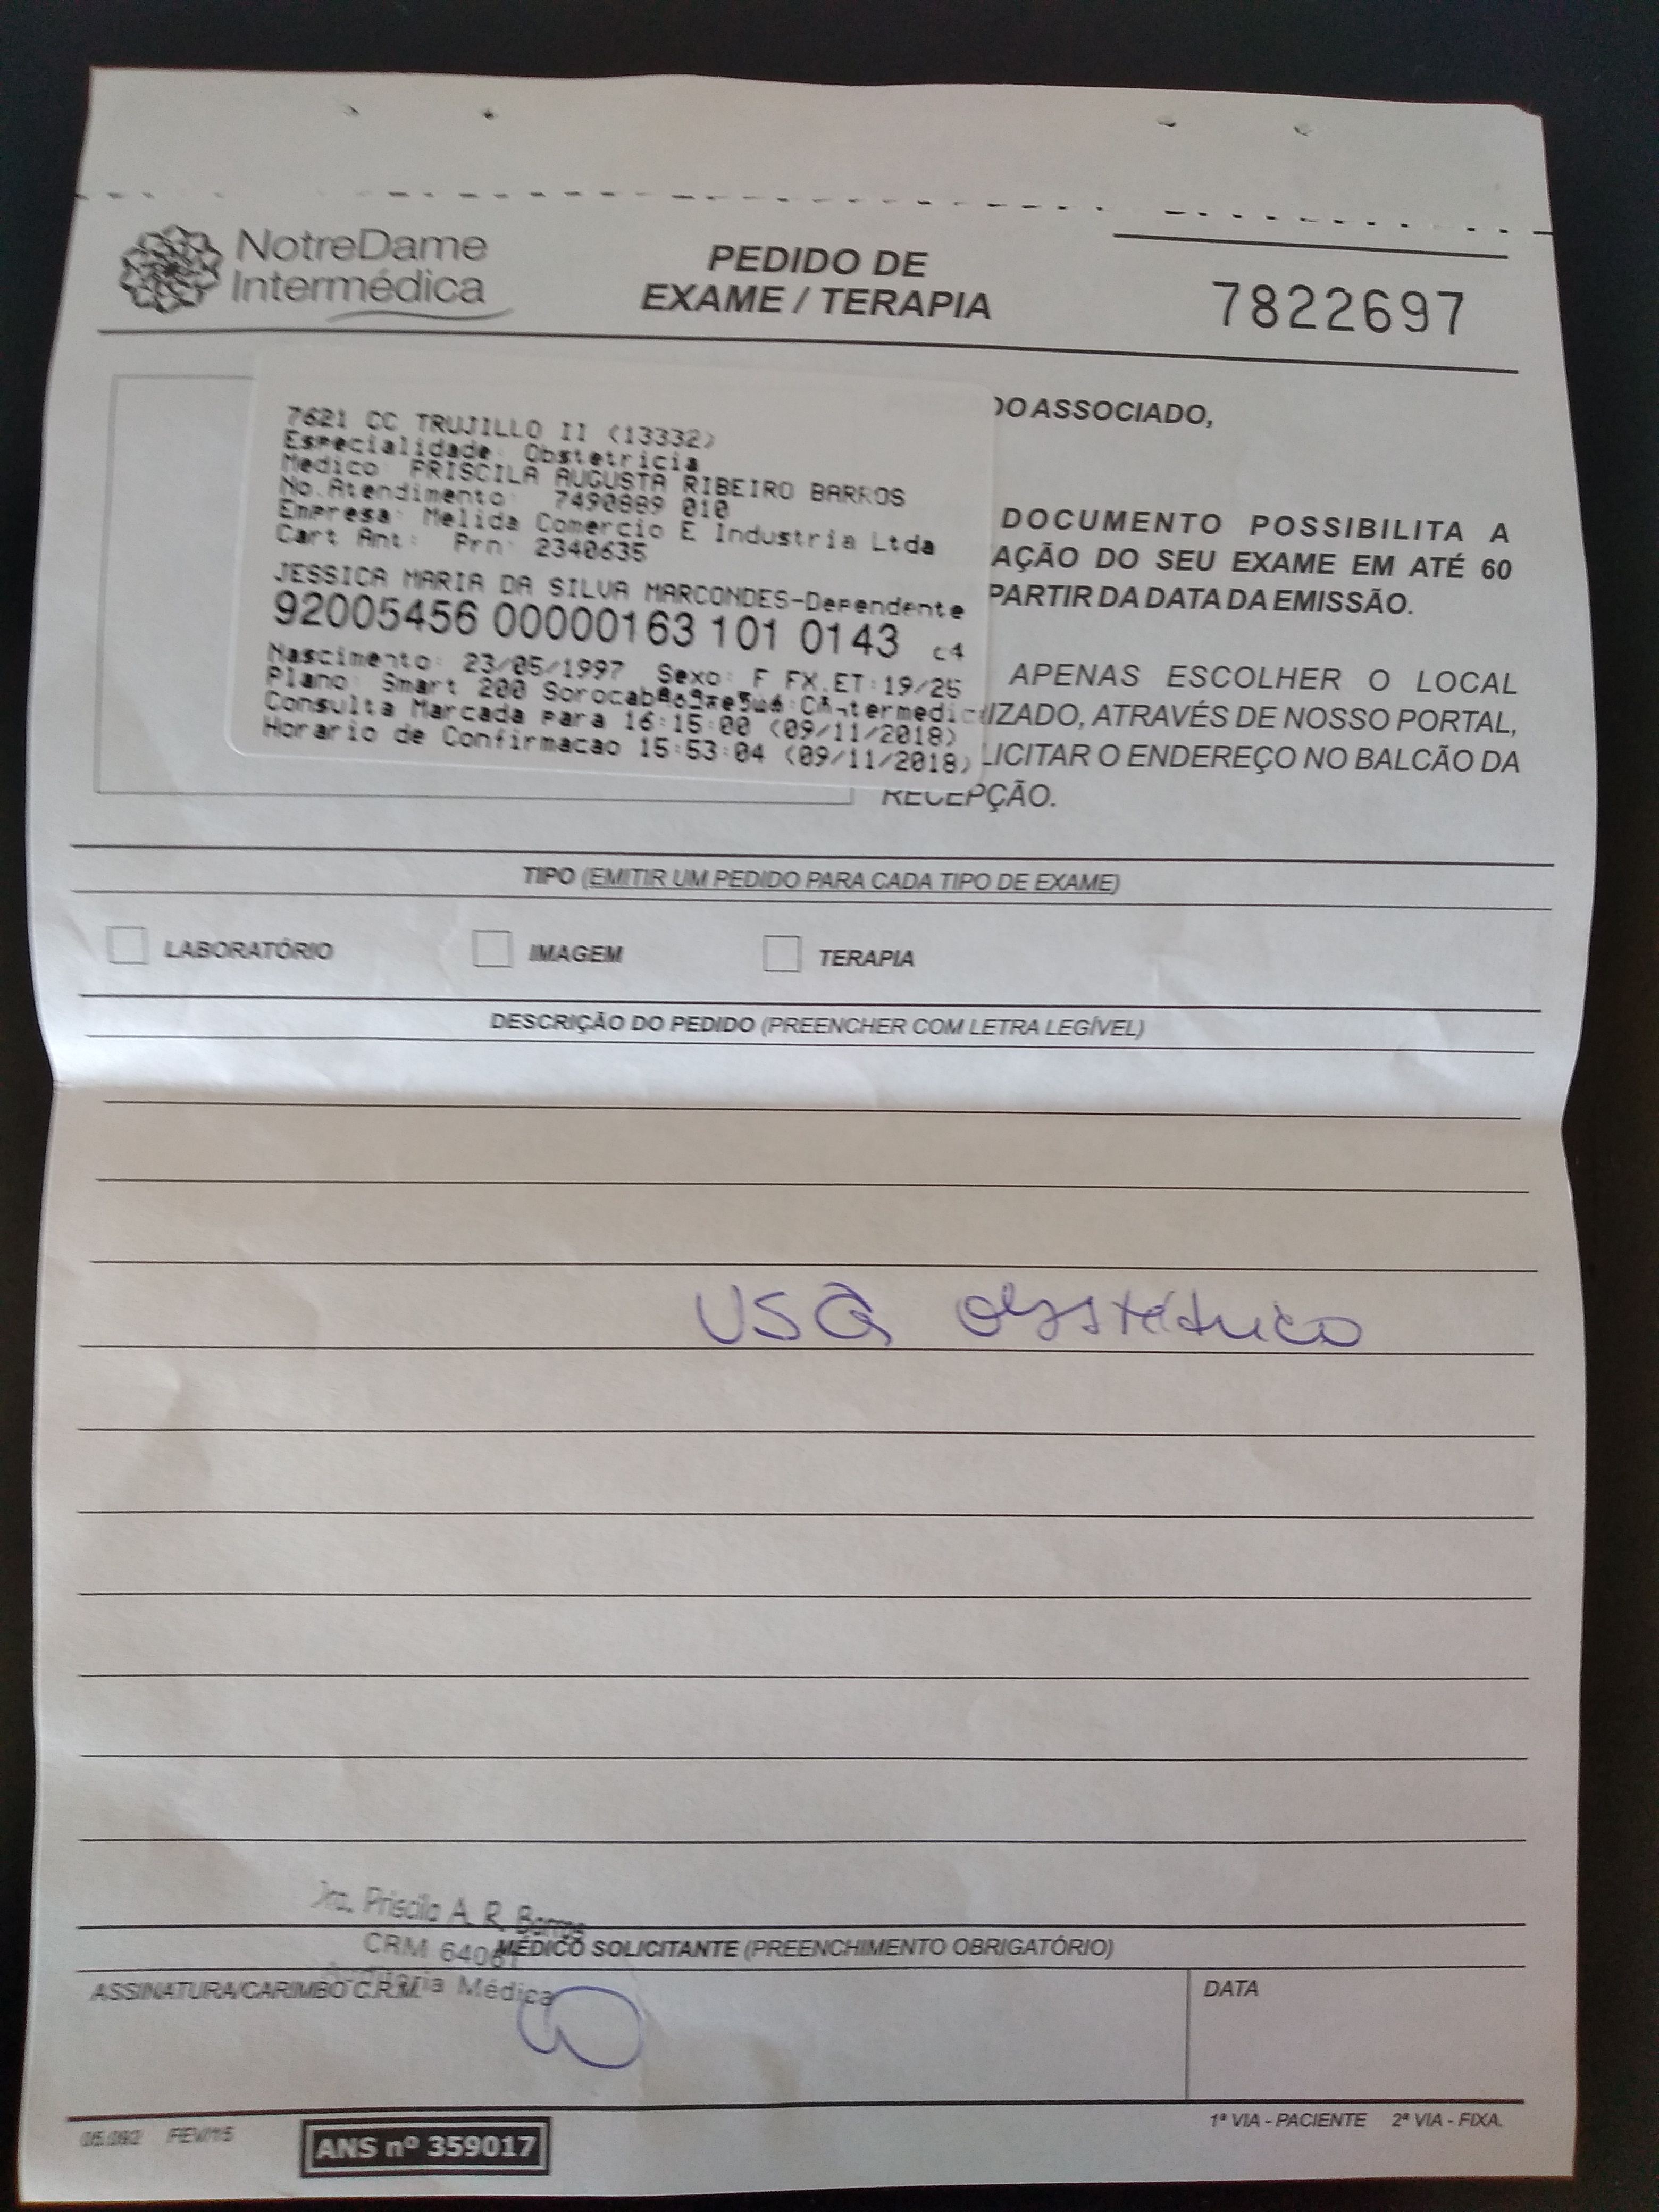 NotreDame
Intermédica
PEDIDO DE
EXAME / TERAPIA
7822697
7621 CC TRUJILLO II (13332)
Especialidade: Obstetricia
Medico: PRISCILA AUGUSTA RIBEIRO BARROS
No.Atendimento: 7490889 010
Empresa: Melida Comercio E Industria Ltda
Cart Ant: Prn: 2340635
JESSICA MARIA DA SILVA MARCONDES-Dependente
92005456 00000163 101 0143 c4
Nascimento: 23/05/1997 Sexo: F FX.ET:19/25
Plano: Smart 200
Consulta Marcada para 16:15:00 (09/11/2018)
Horario de Confirmacao 15:53:04 (09/11/2018)
DO ASSOCIADO,
DOCUMENTO POSSIBILITA A
AÇÃO DO SEU EXAME EM ATÉ 60
PARTIR DA DATA DA EMISSÃO.
APENAS ESCOLHER O LOCAL
IZADO, ATRAVÉS DE NOSSO PORTAL,
LICITAR O ENDEREÇO NO BALCÃO DA
RECEPÇÃO.
TIPO (EMITIR UM PEDIDO PARA CADA TIPO DE EXAME)
LABORATÓRIO IMAGEM TERAPIA
DESCRIÇÃO DO PEDIDO (PREENCHER COM LETRA LEGÍVEL)
USG obstétrico
Dra. Priscila A. R. Barros
CRM 64061
MÉDICO SOLICITANTE (PREENCHIMENTO OBRIGATÓRIO)
Auditoria Médica
ASSINATURA/CARIMBO C.R.M. DATA
1ª VIA - PACIENTE 2ª VIA - FIXA.
05.092 FEV/15
ANS nº 359017